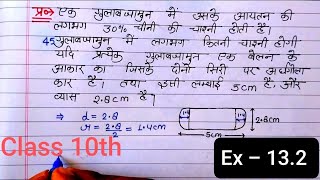 प्रन० एक गुलाबजामुन में उसके आयतन की
लगभग 30% चीनी की चाशनी होती है।
45 गुलाबजामुन में लगभग कितनी चाशनी होगी
यदि प्रत्येक गुलाबजामुन एक बेलन के
आकार का जिसके दोनों सिरों पर अर्धगोला
कार है। तथा इसकी लम्बाई 5cm है, और
व्यास 2.8cm है।
⇒ d = 2.8
r = 2.8/2 = 1.4cm
2.8cm
5cm
Class 10th
Ex – 13.2